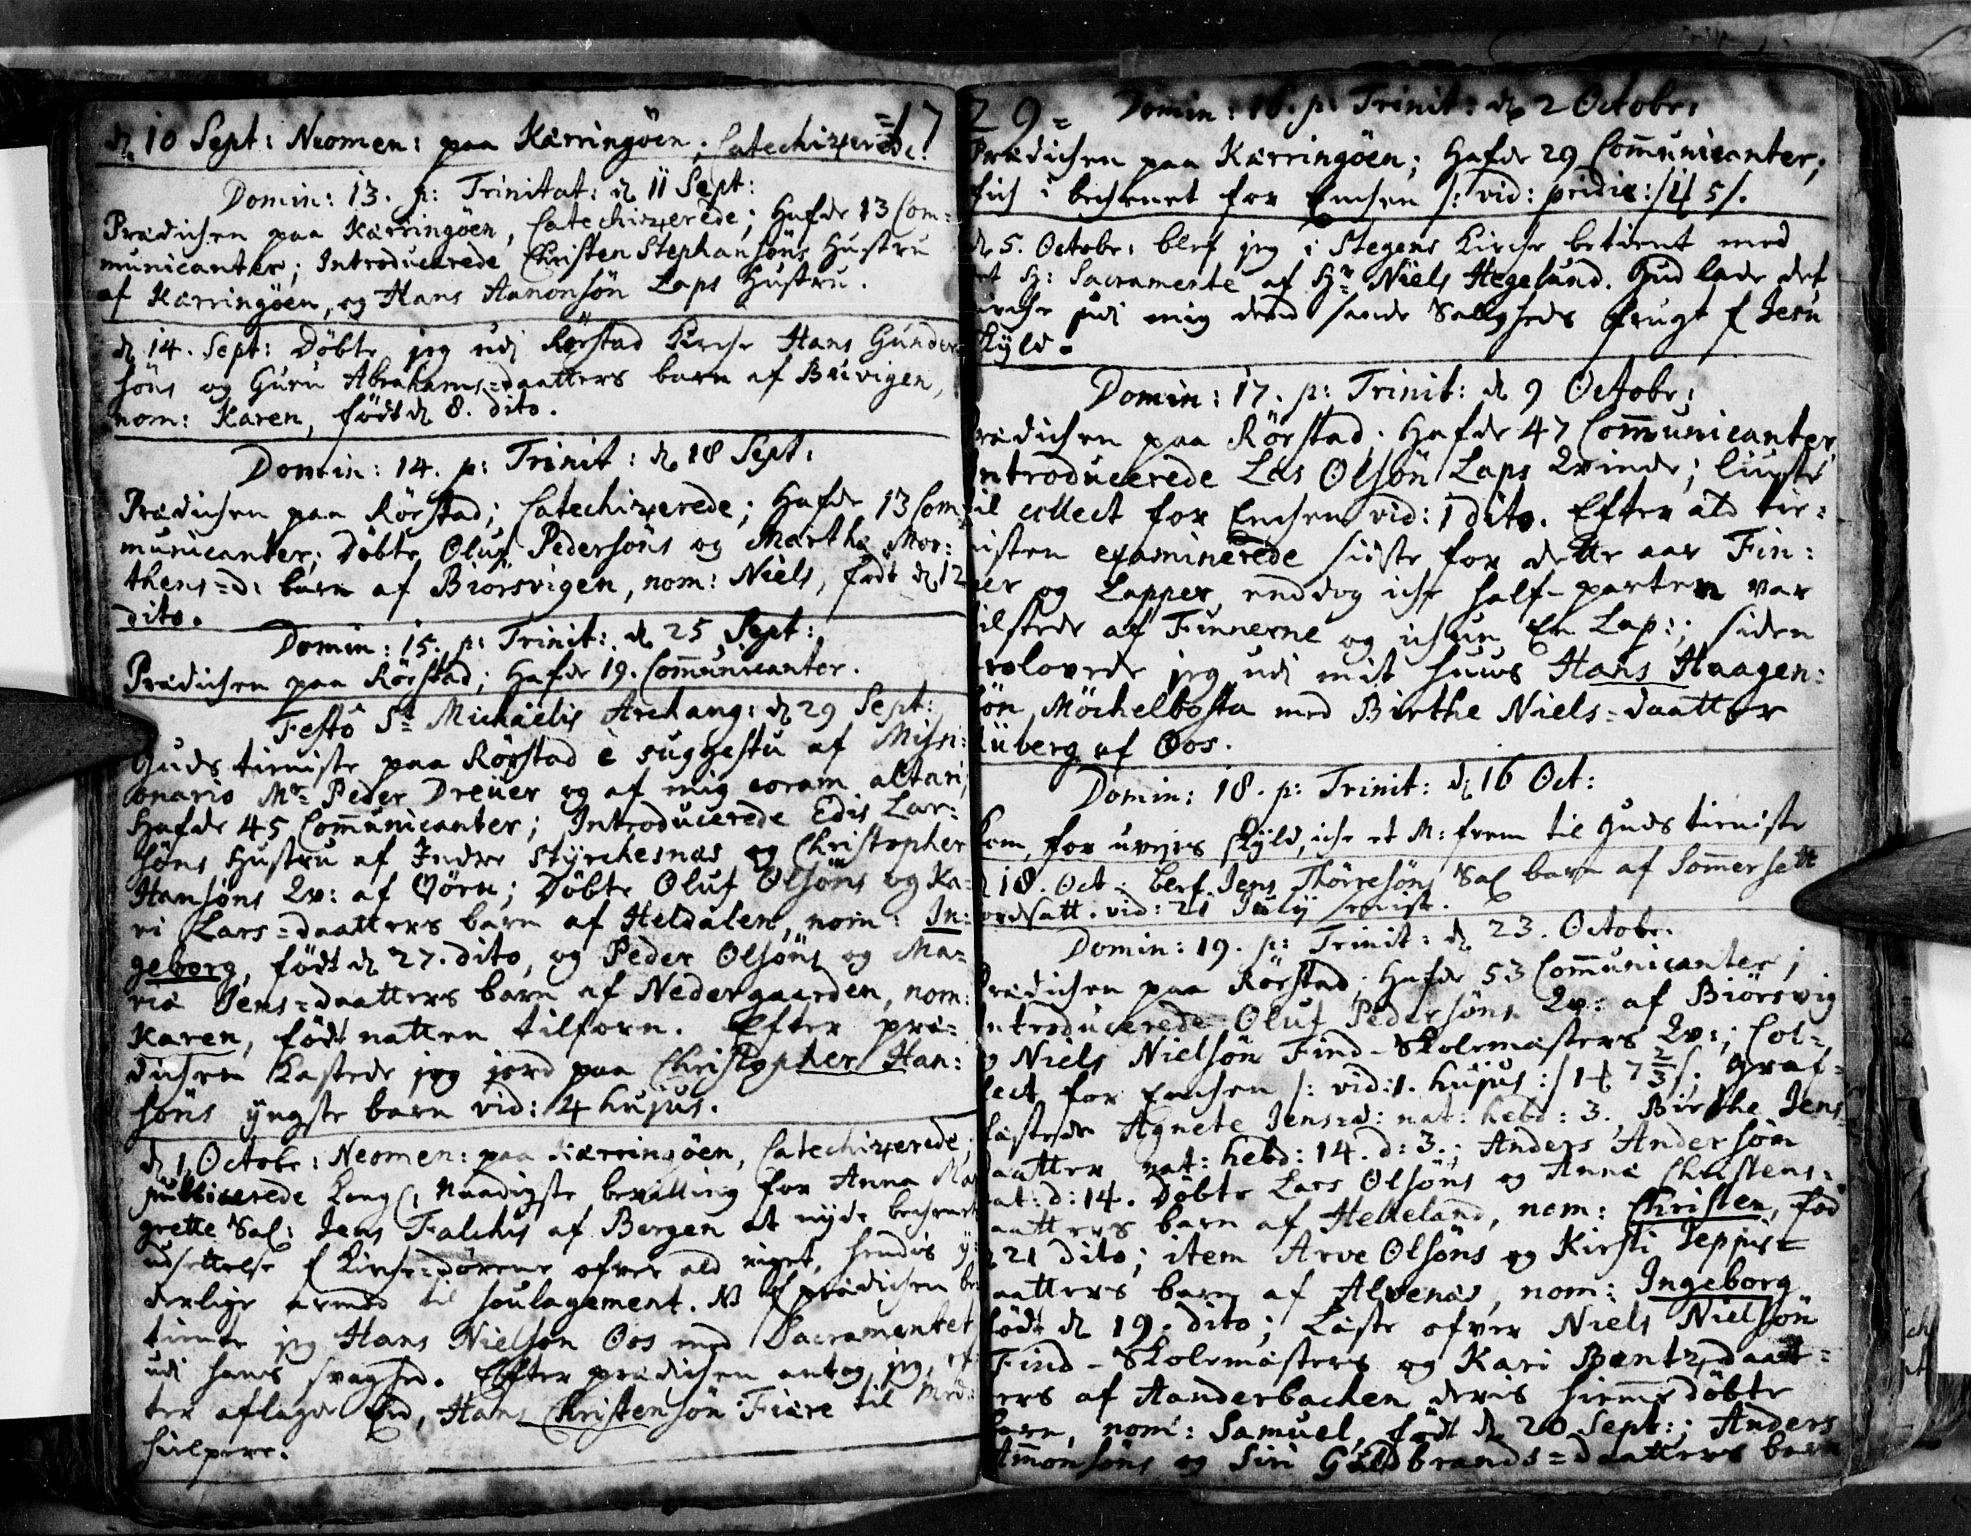 =17
d. 10 Sept: Neomen: paa Kærringöen, Catechizerede.
Domin: 13. p: Trinitat: d. 11 Sept:
Prædichen paa Kærringöen, Catechizerede; Hafde 13 Com=
municanter; Introducerede Christen Stephansöns Hustru
af Kærringöen, og Hans Aanonsön Laps Hustru.
d. 14. Sept: Döbte jeg udj Rörstad Kirche Hans Gunder
söns og Guru Abrahams=daatters barn af Bruvigen,
nom: Karen, födt d. 8. dito.
Domin: 14. p: Trinit: d. 18 Sept:
Prædichen paa Rörstad; Catechizerede; Hafde 13 Com=
municanter; Döbte Oluf Pedersöns og Martha Mor:
thens=d: barn af Biörsvigen, nom: Niels, födt d. 12
dito.
Domin: 15. p: Trinit: d. 25 Sept:
Prædichen paa Rörstad; Hafde 19. Com̄unicanter.
Festo St Michaëlis Archang: d. 29 Sept:
Guds tieniste paa Rörstad è suggestu af Missi=
onario Mr Peder Dreüer og af mig coram altari;
Hafde 45 Com̄unicanter; Introducerede Edis Lar=
söns Hustru af Indre Styrchesnæs og Christopher
Hansöns Qv: af Qörn; Döbte Oluf Olsöns og Ka=
ri Lars=daatters barn af Heldalen, nom: In=
geborg, födt d. 27. dito, og Peder Olsöns og Ma=
ria Jens=daatters barn af Nedergaarden, nom:
Karen, födt natten tilforn. Efter præ=
dichen kastede jeg jord paa Christopher Han=
söns yngste barn vid: 4 hujus.
d. 1. Octobr: Neomen: paa Kærringöen, Catechizerede;
publicerede Kongl: Naadigste bevilling for Anna Mar
grette Sal: Jens Falchis af Bergen at nyde bechenet
udsettelse f Kirche=dörene ofver ald riget, hendis y=
derlige armod til soulagement. NB f prædichen be
tiente jeg Hans Nielsön Oos med Sacramentet
udi hans svaghed. Effter prædichen antog jeg, ef
ter aflagde Eed, Hans Christensön Fiære til Med=
hielpere.
29= Domin: 16. p: Trinit: d. 2 Octobr:
Prædichen paa Kærringöen; Hafde 29 Com̄unicanter;
fich i bechenet for Enchen /: vid: pridie :/ 5/.
d. 5. Octobr: blef jeg i Stegens Kirche betient med
et H: Sacramente af Hr Niels Hegelund. Gud lade det
virche udj mig dend sande Saligheds frugt f Jesu
skyld.
Domin: 17. p: Trinit: d. 9 Octobr:
Prædichen paa Rörstad. Hafde 47 Com̄unicanter
Introducerede Las Olsön Laps Qvinde; liuste
til collect for Enchen vid: 1 dito. Efter ald tie=
nisten examinerede sidste for dette aar Fin=
ner og Lapper, enddog iche half-parten var
tilstede af Finnerne og ichun En Lap:; siden
trolovede jeg udi mit huus Hans Haagen=
sön Möchelbosta med Birthe Niels=daatter
Riüberg af Oos.
Domin: 18. p: Trinit: d. 16 Oct:
Kom, for uveirs skyld, iche et M: frem til Guds tieniste
d. 18. Oct: blef Jens Thörresöns Sal barn af Som̄ersett
jordsatt. vid: 21 July
Domin: 19. p: Trinit: d. 23. Octobr:
Prædichen paa Rörstad; Hafde 53 Com̄unicanter;
Introducerede Oluf Pedersöns Qv: af Biörsvig
og Niels Nielsön Find-Skolemæsters Qv:; Col=
lect for Enchen /: vid: 1. hujus :/ 1 7 2/3 /. Graf=
fastede Agnete Jens=d: nat: hebd: 3., Birthe Jens
daatter nat: hebd: 14. d: 3.; Anders Andersön
nat: d: 14. Döbte Lars Olsöns og Anna Christens=
daatters barn af Helleland, nom: Christen, föd
d. 21 dito; item Arve Olsöns og Kirsti Jeppis=
daatters barn af Alvenæs, nom: Ingeborg
födt d. 19. dito; Læste ofver Niels Nielsön
Find-Skolemæsters og Kari Bentz=daat=
ters af Aanderbachen deris hiem̄edöbte
barn, nom: Samuel, födt d. 20 Sept:; Anders
Am̄onsöns og Siri Guldbrands=daatters barn